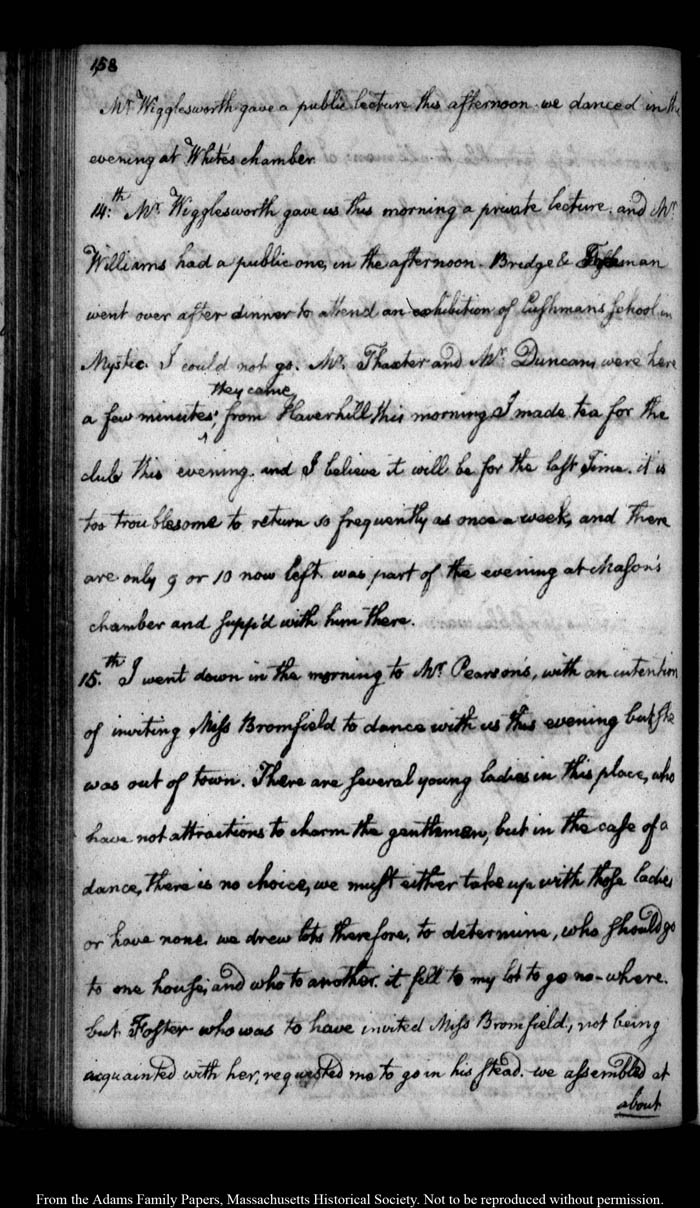 158
Mr. Wigglesworth gave a public lecture this afternoon. we danced in the
evening at White's chamber.
14:th Mr. Wigglesworth gave us this morning a private lecture. and Mr.
Williams had a public one, in the afternoon. Bridge &
went over after dinner to attend an exhibition of Cushmans school in
Mystic. I could not go. Mr. Thaxter and Mr. Duncan, were here
they came
a few minutes; from Haverhill this morning I made tea for the
club this evening. and I believe it will be for the last Time. it is
too troublesome to return so frequently as once a week, and there
are only 9 or 10 now left. was part of the evening at Mason's
chamber and supp'd with him there.
15.th I went down in the morning to Mr. Pearson's, with an intention
of inviting Miss Bromfield to dance with us this evening but she
was out of town. There are several young ladies in this place, who
have not attractions to charm the gentlemen, but in the case of a
dance, there is no choice, we must either take up with those ladies
or have none. we drew lots therefore, to determine, who should go
to one house, and who to another. it fell to my lot to go no-where.
but Foster who was to have invited Miss Bromfield, not being
acquainted with her, requested me to go in his stead. we assembled at
about
From the Adams Family Papers, Massachusetts Historical Society. Not to be reproduced without permission.